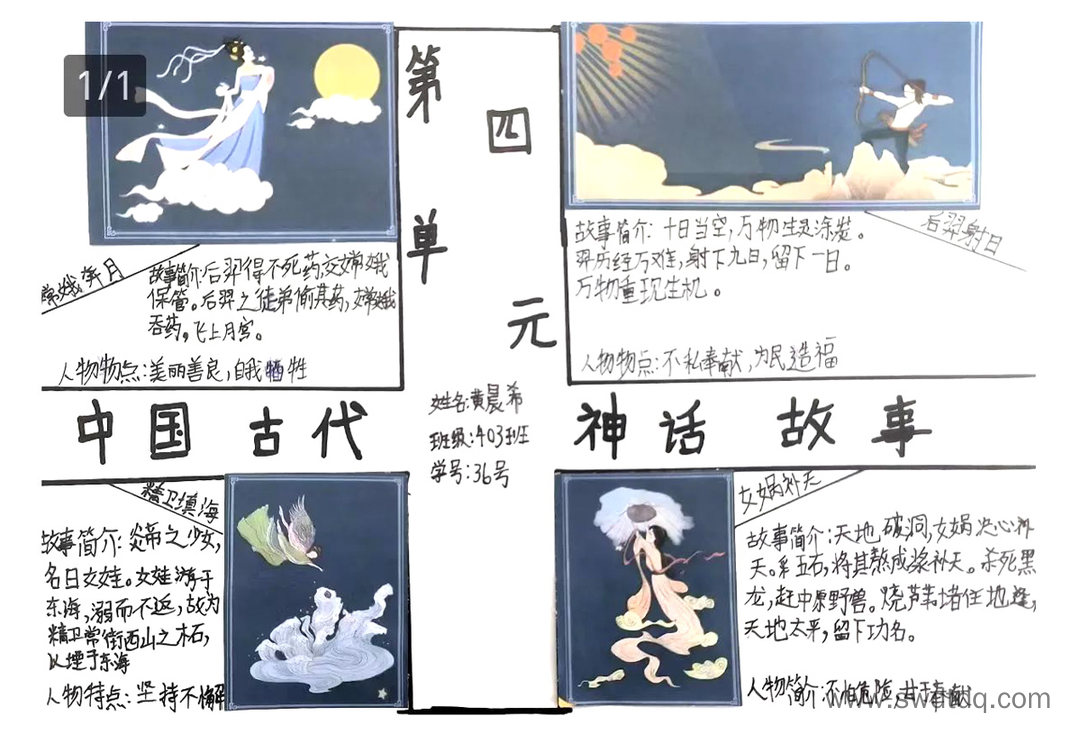 1/1
第四单元
常娥奔月
故事简介:后羿得不死药交嫦娥
保管。后羿之徒弟偷其药,嫦娥
吞药,飞上月宫。
人物物点:美丽善良,自我牺牲
后羿射日
故事简介:十日当空,万物生灵涂炭。
羿历经万难,射下九日,留下一日。
万物重现生机。
人物物点:不私奉献,为民造福
中国古代
神话故事
姓名:黄晨希
班级:403班
学号:36号
精卫填海
故事简介:炎帝之少女,
名曰女娃。女娃游于
东海,溺而不返,故为
精卫常衔西山之木石,
以堙于东海
人物特点:坚持不懈
女娲补天
故事简介:天地破洞,女娲决心补
天。采五石,将其熬成浆补天。杀死黑
龙,赶中原野兽。烧芦苇堵住地缝,
天地太平,留下功名。
人物简介:不怕危险,甘于奉献